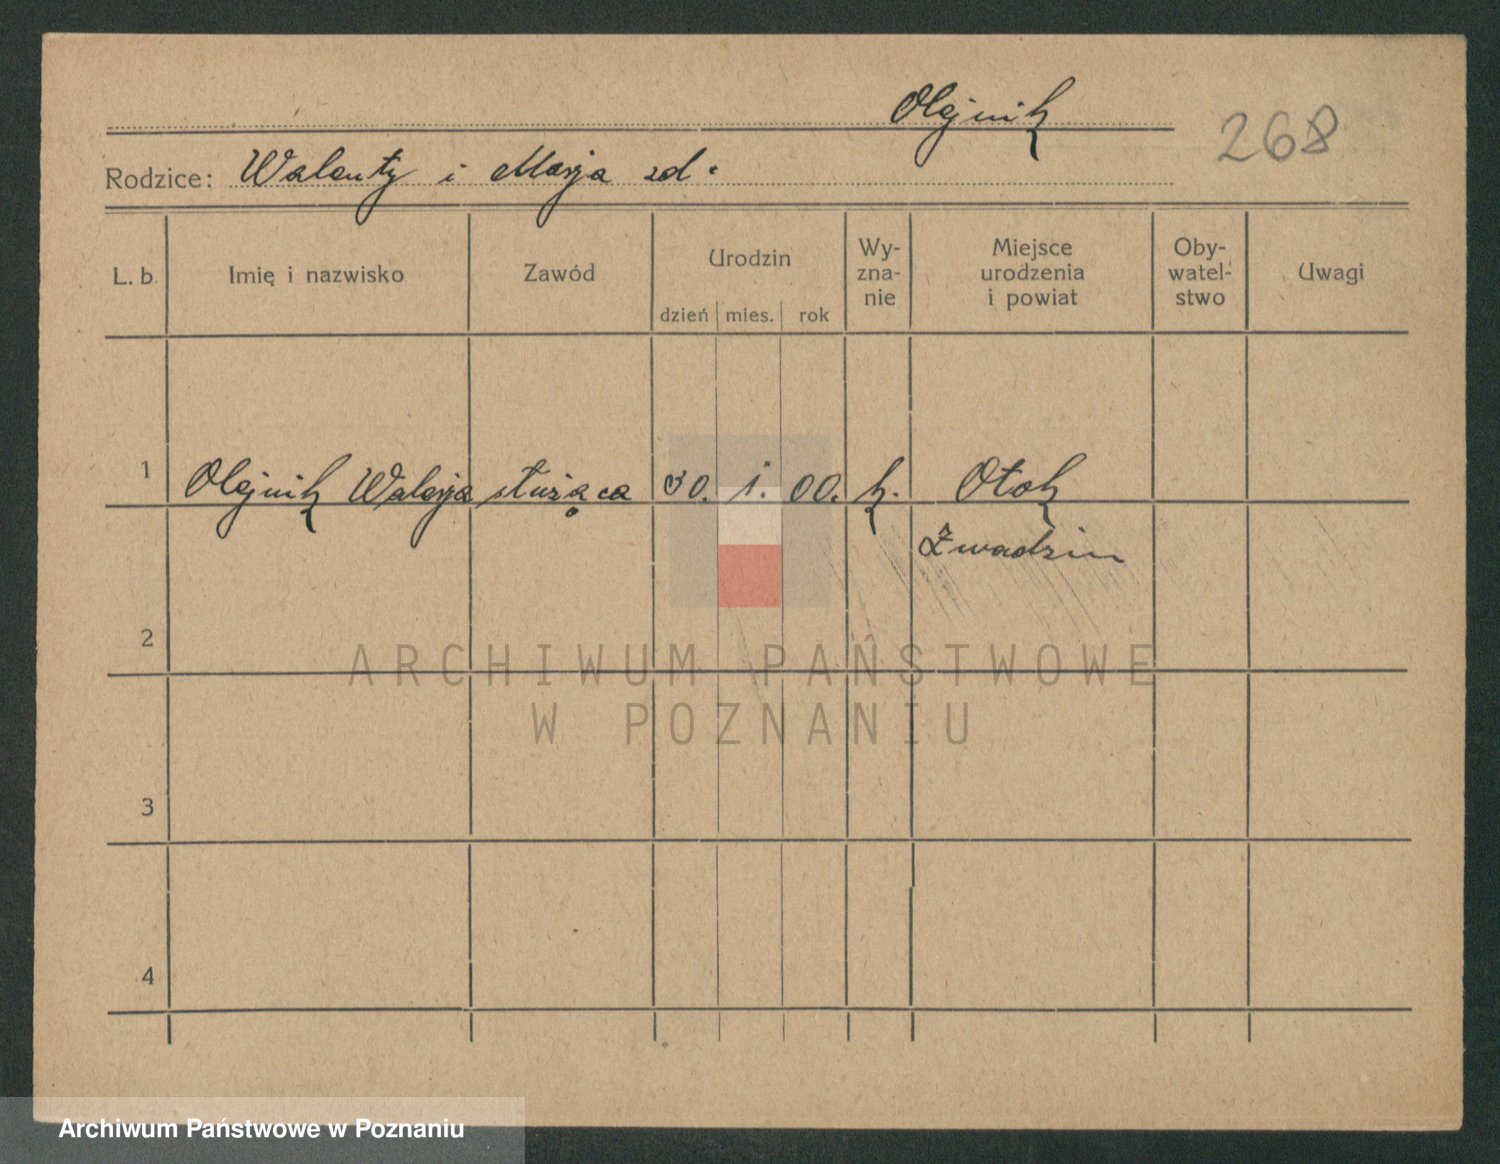 Olejnik
268
Rodzice: Walenty i Marja zd.
L. b. Imię i nazwisko Zawód Urodzin dzień mies. rok Wy-zna-nie Miejsce urodzenia i powiat Oby-watel-stwo Uwagi
1 Olejnik Walerja służąca 30. 1. 00. k. Otok
Zwadzim
2
ARCHIWUM PAŃSTWOWE
W POZNANIU
3
4
Archiwum Państwowe w Poznaniu